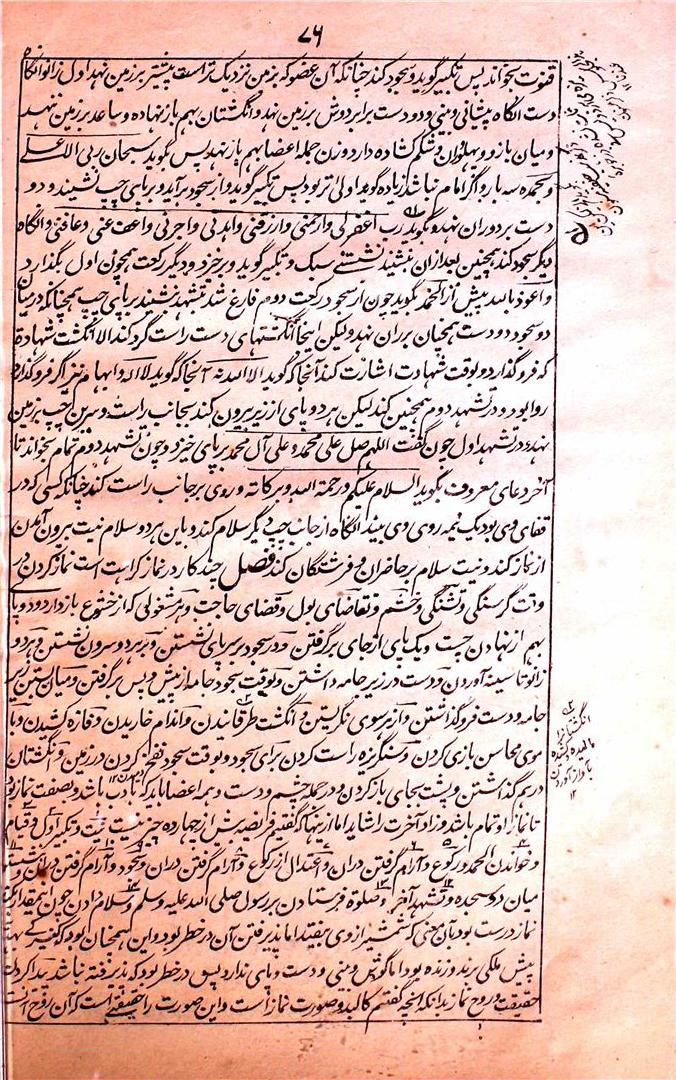 ۷۶
قنوت بخواند پس تکبیر گوید و سجود کند چنانکه آن عضو که بزمین نزدیک تر است پیشتر بر زمین نهد اول زانو آنگاه
دست آنگاه پیشانی و بینی و دو دست برابر دوش بر زمین نهد و انگشتان بهم باز نهاده و ساعد بر زمین ننهد
و میان بازو و پهلو و ران و شکم کشاده دارد و زن جمله اعضا بهم باز نهد پس بگوید سبحان ربی الاعلی
و بحمده سه بار و اگر امام نباشد زیاده گوید اولی تر بود پس تکبیر گوید و از سجود بر آید و بر پای چپ نشیند و دو
دست بر دو ران نهد و بگوید رب اغفرلی وارحمنی وارزقنی واهدنی واجرنی واعف عنی وعافنی و آنگاه
دیگر سجود کند همچنین بعد ازان بنشیند نشستنے سبک و تکبیر گوید و برخیزد و دیگر رکعت همچون اول بگذارد
و اعوذ بالله پیش از الحمد بگوید چون از سجود رکعت دوم فارغ شد بتشهد نشیند بر پای چپ همچنانکه در میان
دو سجود و دو دست همچنان بر ران نهد ولیکن اینجا انگشتهای دست راست گرد کند الا انگشت شهادة
که فرو گذارد و بوقت شهادت اشارت کند آنجا که گوید الا الله نه آنجا که گوید لا اله و ابهام نیز اگر فرو گذارد
روا بود و در تشهد دوم همچنین کند لیکن هر دو پای از زیر بیرون کند بجانب راست و سرین چپ بر زمین
نهد و در تشهد اول چون گفت اللهم صل علی محمد وعلی آل محمد بر پای خیزد و چون تشهد دوم تمام بخواند تا
آخر دعای معروف بگوید السلام علیکم ورحمة الله وبرکاته و روی بر جانب راست کند چنانکه کسی که در
قفای وی بود یک نیمه روی وی بیند آنگاه از جانب چپ دیگر سلام کند و باین هر دو سلام نیت بیرون آمدن
از نماز کند و نیت سلام بر حاضران و فرشتگان کند فصل چند کار در نماز کراهت است نماز کردن در
وقت گرسنگی و تشنگی و خشم و تقاضای بول و قضای حاجت و هر مشغولی که از خشوع باز دارد و دو پای
بهم باز نهادن چست و یک پای از جای برگرفتن و در سجود بر سر پای نشستن و بر هر دو سرون نشستن و هر دو
زانو تا سینه آوردن و دست در زیر جامه داشتن و بوقت سجود جامه از پیش و پس برگرفتن و میان بستن زیر
جامه و دست فرو گذاشتن و از هر سوی نگریستن و انگشت طرقانیدن و اندام خاریدن و فازه کشیدن و با
موی محاسن بازی کردن و سنگریزه راست کردن برای سجود و بوقت سجود نفخه کردن در زمین و انگشتان
درهم گذاشتن و پشت بجای باز کردن و در جمله چشم و دست و همه اعضا باید که با ادب باشد و بصفت نماز بود
تا نماز او تمام باشد و زاد آخرت را شاید اما از اینها که گفتیم فریضه بیش از چهارده چیز نیست نیت و تکبیر اول و قیام
و خواندن الحمد و رکوع و آرام گرفتن دران و اعتدال از رکوع و آرام گرفتن دران و سجود و آرام گرفتن دران و نشستن
میان دو سجده و تشهد آخر و صلوة فرستادن بر رسول صلی الله علیه وسلم و سلام دادن چون اینقدار کند
نماز درست بود بآن معنی که شمشیر از وی بیفتد اما پذیرفتن آن در خطر بود و این همچنان بود که کنیزکے بهدیه
پیش ملکی برند و زنده بود اما گوش و بینی و دست و پای ندارد پس در خطر بود که پذیرفته نباشد پیدا کردن
حقیقت و روح نماز بدانکه آنچه گفتیم کالبد و صورت نماز است و این صورت را حقیقتے است که آن روح است
۲ انگشتانرا
مالیده و کشیده
بآواز آوردن
۱۲